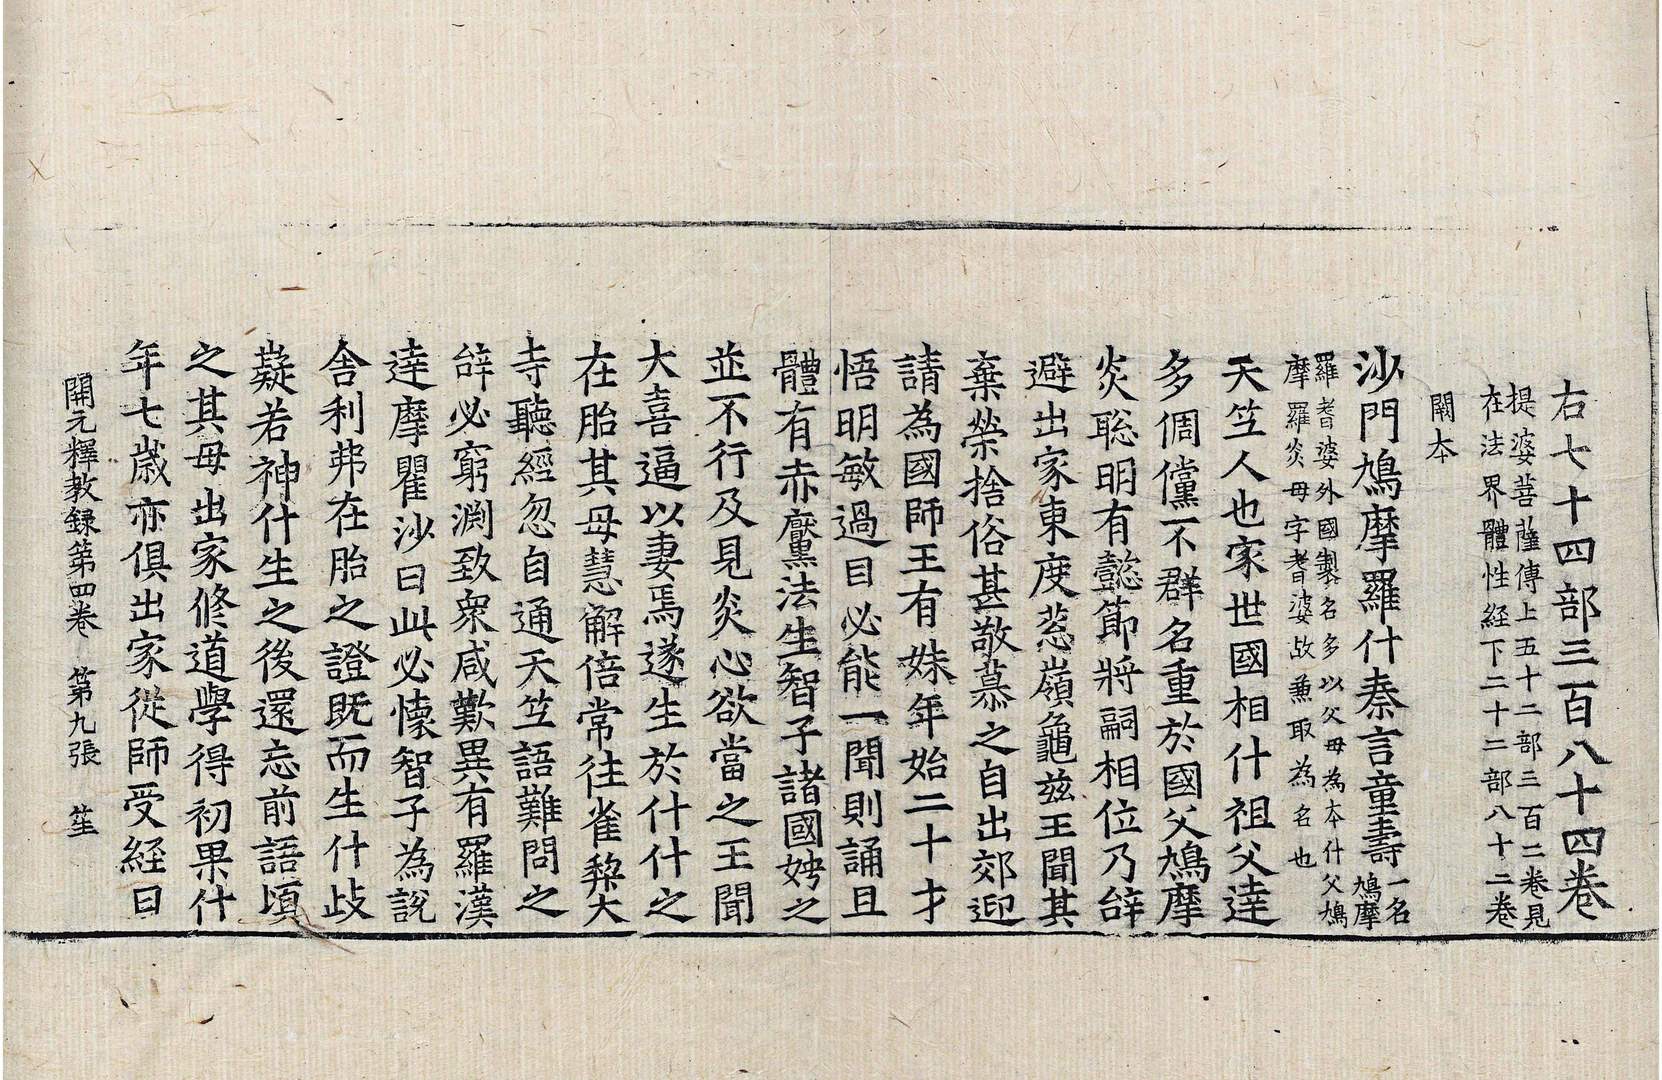 右七十四部三百八十四卷
提婆菩薩傳上五十二部三百二卷見
在法界體性經下二十二部八十二卷
闕本
沙門鳩摩羅什秦言童壽一名鳩摩
羅耆婆外國製名多以父母為本什父鳩
摩羅炎母字耆婆故兼取為名也
天竺人也家世國相什祖父達
多倜儻不群名重於國父鳩摩
炎聰明有懿節將嗣相位乃辝
避出家東度葱嶺龜茲王聞其
棄榮捨俗甚敬慕之自出郊迎
請為國師王有妹年始二十才
悟明敏過目必能一聞則誦且
體有赤黶法生智子諸國娉之
並不行及見炎心欲當之王聞
大喜逼以妻焉遂生於什什之
在胎其母慧解倍常往雀梨大
寺聽經忽自通天竺語難問之
辝必窮渕致衆咸歎異有羅漢
達摩瞿沙曰此必懷智子為說
舍利弗在胎之證既而生什歧
嶷若神什生之後還忘前語頃
之其母出家修道學得初果什
年七歲亦俱出家從師受經日
開元釋教録第四卷 第九張 笙